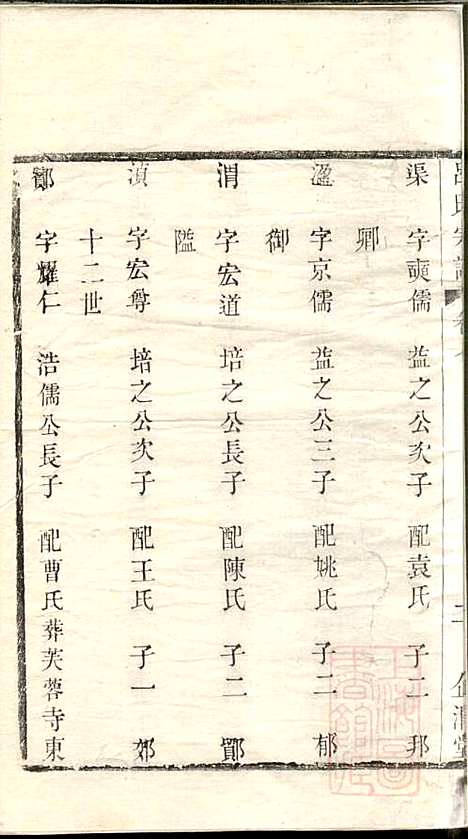 呂氏宗譜
渠 字奭儒 益之公次子 配袁氏 子二 邦
卿
澄 字京儒 益之公三子 配姚氏 子二 郁
御
渭 字宏道 培之公長子 配陳氏 子二 鄮
隘
湏 字宏尊 培之公次子 配王氏 子一 郊
十二世
鄮 字耀仁 浩儒公長子 配曹氏葬芙蓉寺東